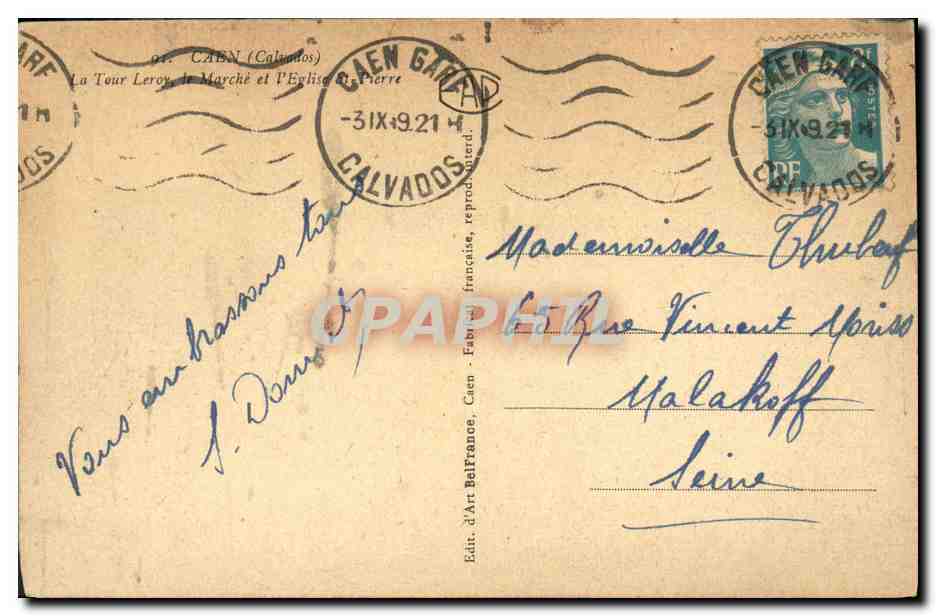 91. CAEN (Calvados)
La Tour Leroy, le Marché et l'Eglise St-Pierre
GARE
CALVADOS
CAEN GARE
-3 IX 49.21 H
CALVADOS
CAP
CAEN GARE
-3 IX 49.21 H
CALVADOS
RF
POSTES
Vous embrassons tous
Edit. d'Art BelFrance, Caen - Fabricat. française, reprod. interd.
Mademoiselle
65 Rue Vincent
Malakoff
Seine
CPAPHIL